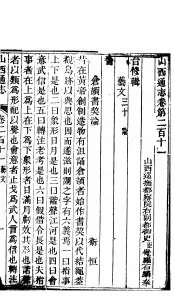 山西通志卷第二百十一
山西巡撫都察院右副都御史覺羅石麟奉
藝文三十
書
倉頡書契論
衛恒
昔在黃帝創制造物有沮誦倉頡者始作書契以代結繩葢
覩鳥跡以興思也因而遂滋則謂之字有六義焉一曰指事
上下是也二曰象形日月是也三曰形聲江河是也四曰會
意武信是也五曰轉注老考是也六曰假借令長是也夫指
事者在上為上在下為下象形者日滿月虧效其形也諧聲
者以類為形配以聲也會意者止戈為武人言為信也轉注